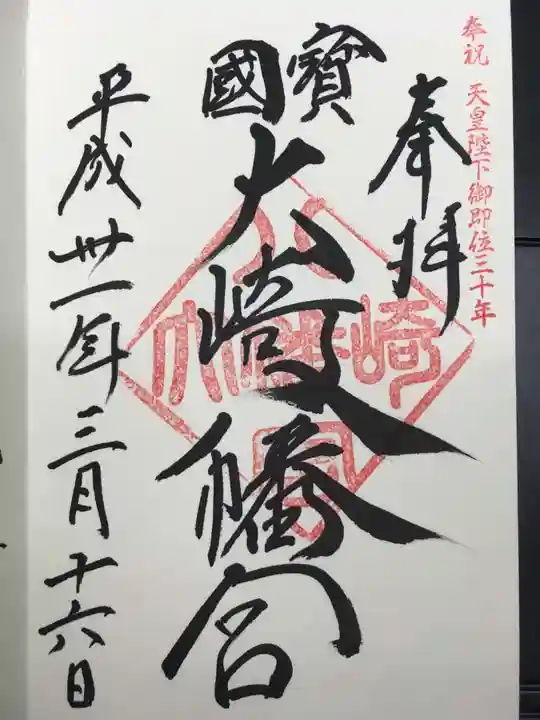 奉祝 天皇陛下御即位三十年
奉拝
國寶
大崎八幡宮
平成卅一年三月十六日